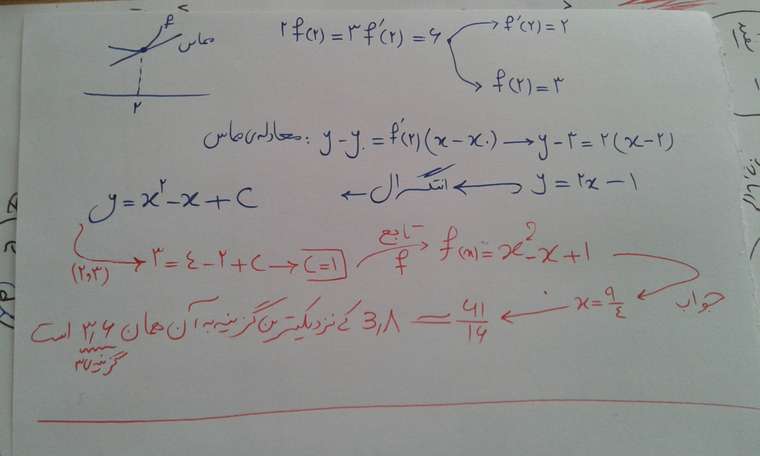 f
مماس
۲
۲f(۲) = ۳f′(۲) = ۶ → f′(۲) = ۲
→ f(۲) = ۳
معادله‌ی مماس: y - y. = f′(۲)(x - x.) → y - ۳ = ۲(x - ۲)
y = ۲x - ۱ → انتگرال → y = x^۲ - x + C
(۲,۳) → ۳ = ٤ - ۲ + C → C = 1 → تابع f → f(x) = x^2 - x + 1
جواب x = ۹/٤ → ۶۱/۱۶ = ۳,۸ که نزدیکترین گزینه به آن همان ۳,۶ است
گزینه